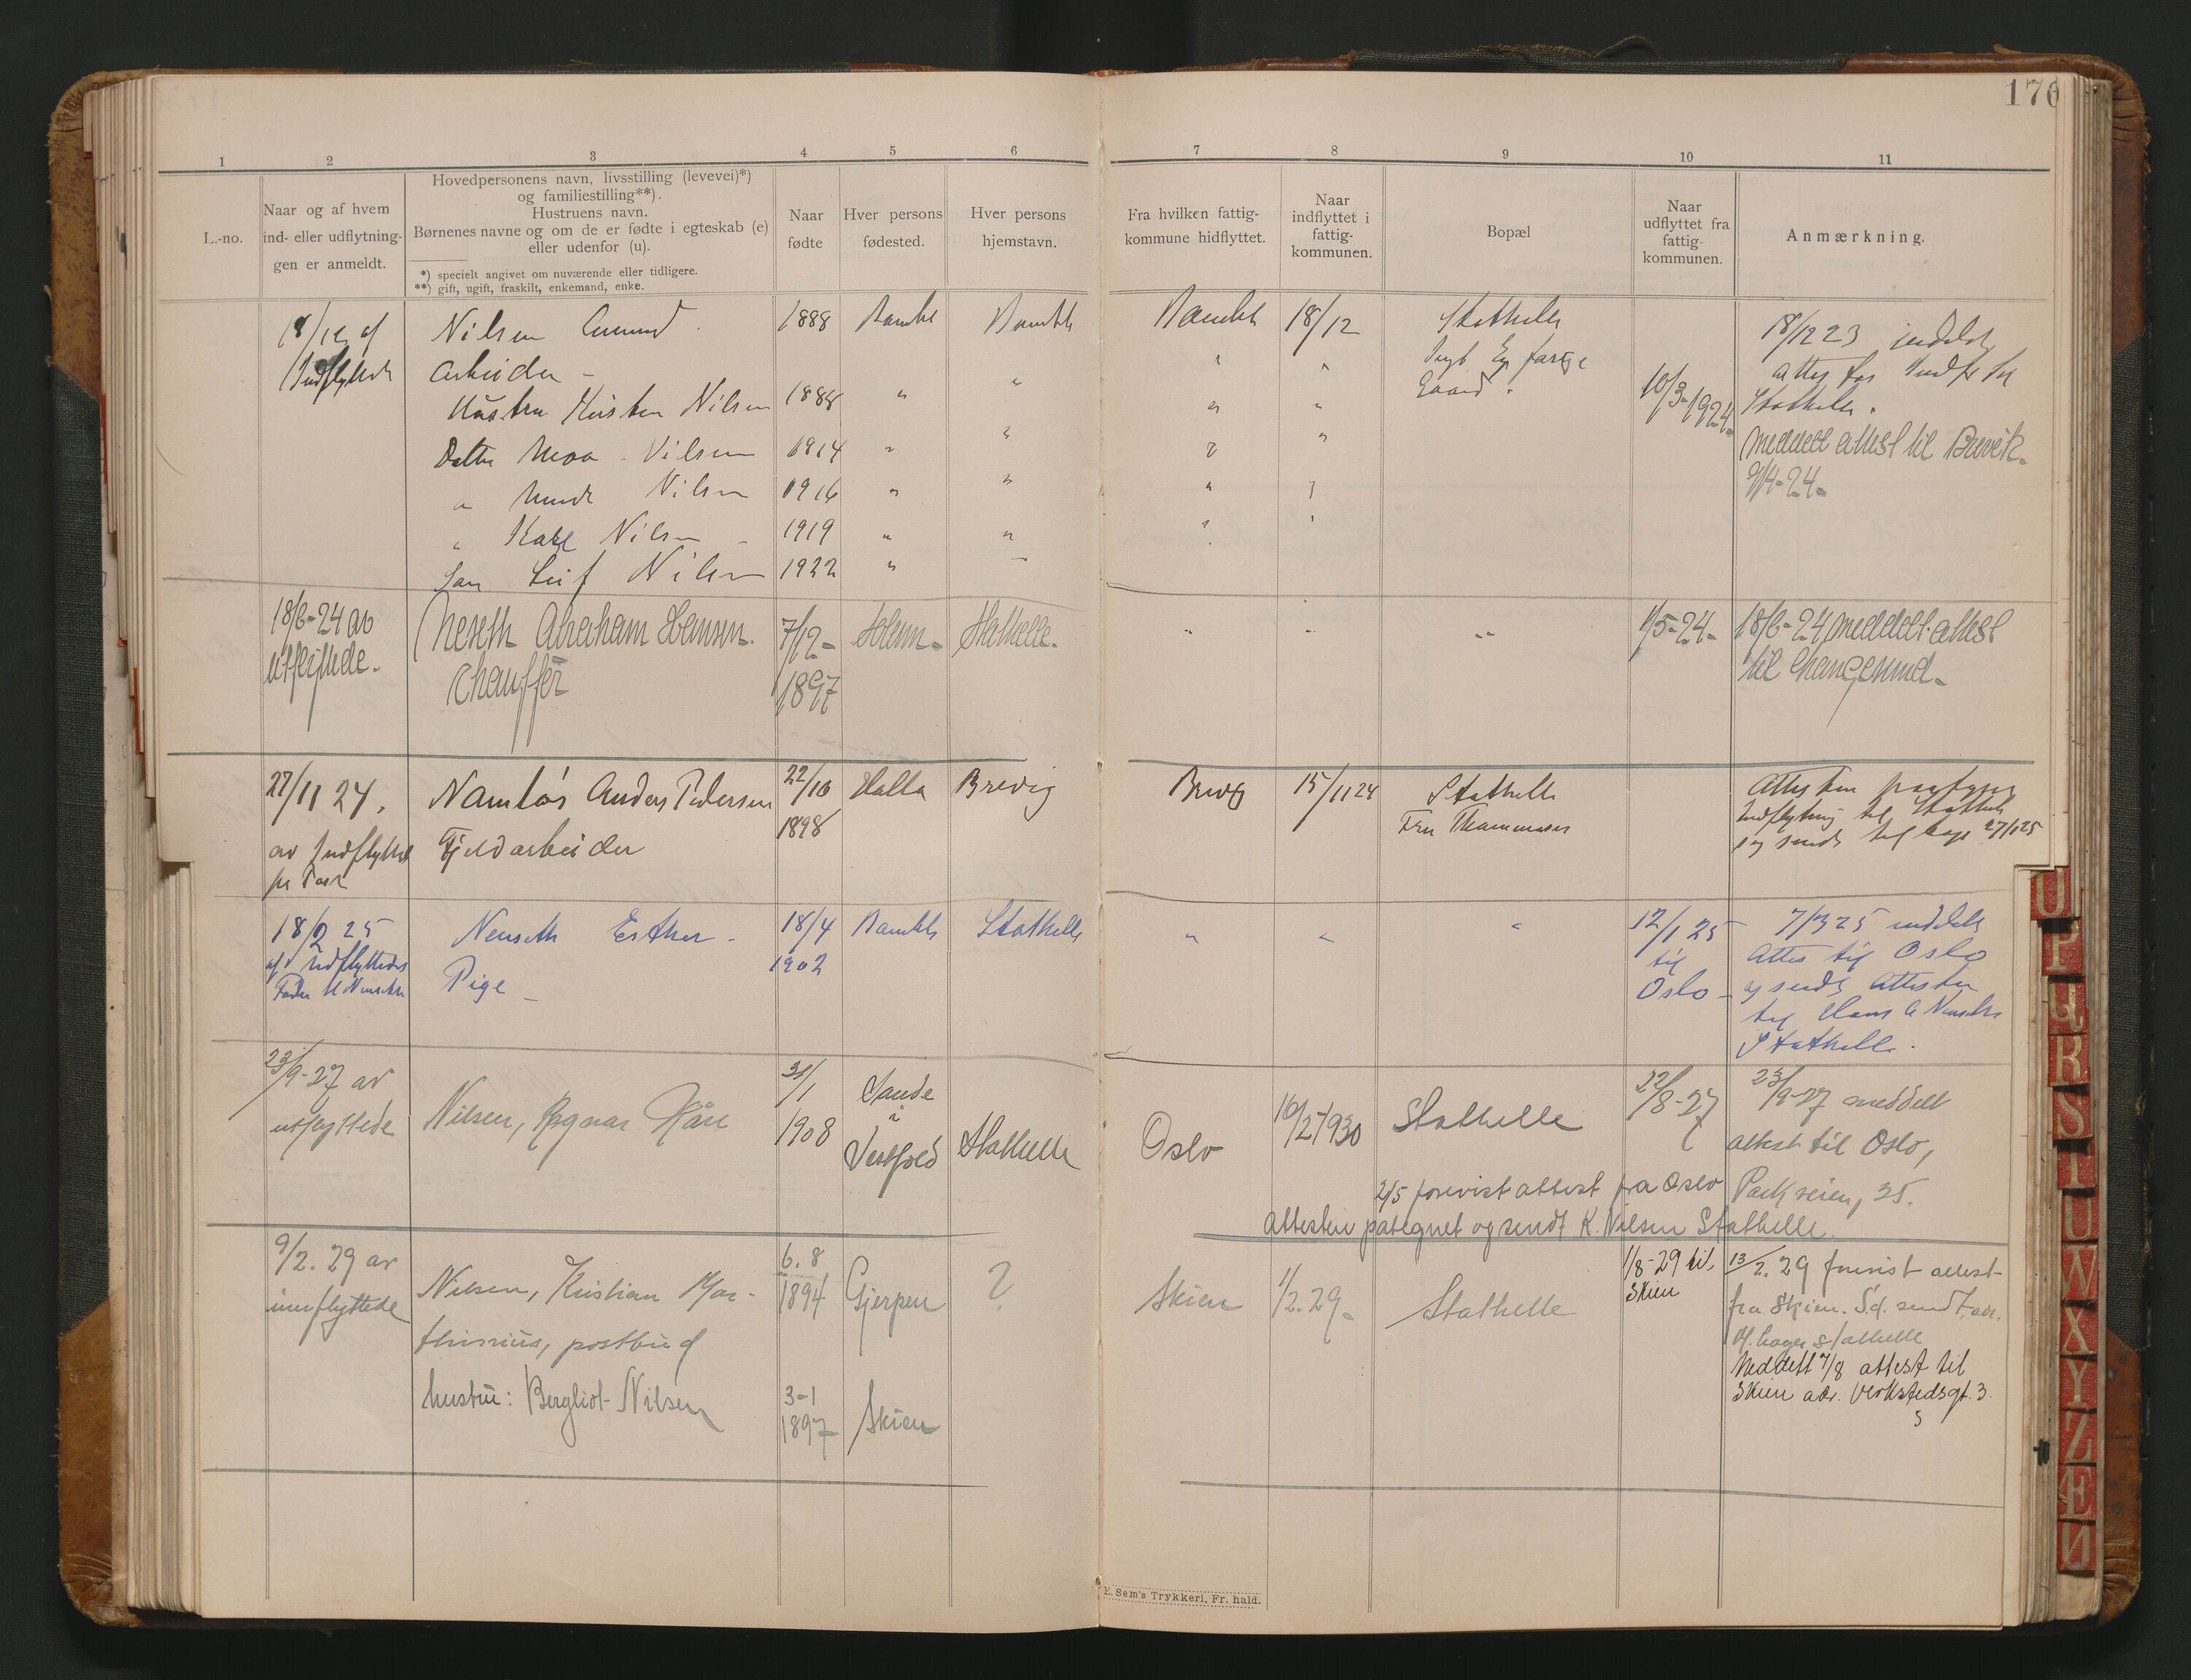 176
1 2 3 4 5 6 7 8 9 10 11
L.-no.
Naar og af hvem
ind- eller udflytning-
gen er anmeldt.
Hovedpersonens navn, livsstilling (levevei)*)
og familiestilling**).
Hustruens navn.
Børnenes navne og om de er fødte i egteskab (e)
eller udenfor (u).
*) specielt angivet om nuværende eller tidligere.
**) gift, ugift, fraskilt, enkemand, enke.
Naar
fødte
Hver persons
fødested.
Hver persons
hjemstavn.
Fra hvilken fattig-
kommune hidflyttet.
Naar
indflyttet i
fattig-
kommunen.
Bopæl
Naar
udflyttet fra
fattig-
kommunen.
Anmærkning.
18/12 af
Indflyttede
Nilsen
Arbeider -
Hustru Kirsten Nilsen
Datter Nilsen
" Nilsen
" Nilsen
Søn Leif Nilsen
1888
1888
1914
1916
1919
1922
Bamble
Bamble
Bamble
18/12
Stathelle
Gaard.
10/3-1924-
18/12 23 meddelt
Attest for Indfl til
Stathelle.
Meddelt attest til Brevik-
9/4-24-
18/6-24 av
utflyttede-
Neseth Abraham Hansen.
Chauffør
7/12-
1897
Stathelle-
" " "
1/5-24-
18/6-24 meddelt attest
til Langesund-
27/11 24.
av Indflyttede
pr Post
Namløs Anders Pedersen
Fjeldarbeider
22/10
1898
Halla
Brevig
Brevig
15/11 24
Stathelle
Fru Thommasen
Attesten
Indflytning til Stathelle
og sendt tilbage 27/1 25
18/2 25
af Udflyttedes
Fader H Nenseth
Nenseth Esther -
Pige -
18/4
1902
Bamble
Stathelle
" " "
12/1 25
til
Oslo -
7/3 25 meddelt
Attes til Oslo
og sendt Attesten
til Hans A Nenseth
Stathelle.
23/9-27 av
utflyttede
Nilsen, Ragnar Kåre
31/1
1908
Sande
i
Vestfold
Stathelle
Oslo
16/2 1930
Stathelle
22/8-27
23/9-27 meddelt
attest til Oslo,
Parkveien, 35.
2/5 forevist attest fra Oslo
Attesten påtegnet og sendt K. Nilsen Stathelle.
9/2. 29 av
innflyttede
Nilsen, Kristian Mar-
thinius, postbud
hustru: Bergliot Nilsen
6. 8
1894
3-1
1897
Gjerpen
Skien
?
Skien
1/2. 29-
Stathelle
1/8-29 til
Skien
13/2. 29 forevist attest
fra Skien. S.d. sendt adr.
Stathelle
Meddelt 7/8 attest til
Skien adr. Verkstedsgt. 3.
E. Sem's Trykkeri, Fr. hald.
O
P
Q
R
S
T
U
W
X
Y
Z
Æ